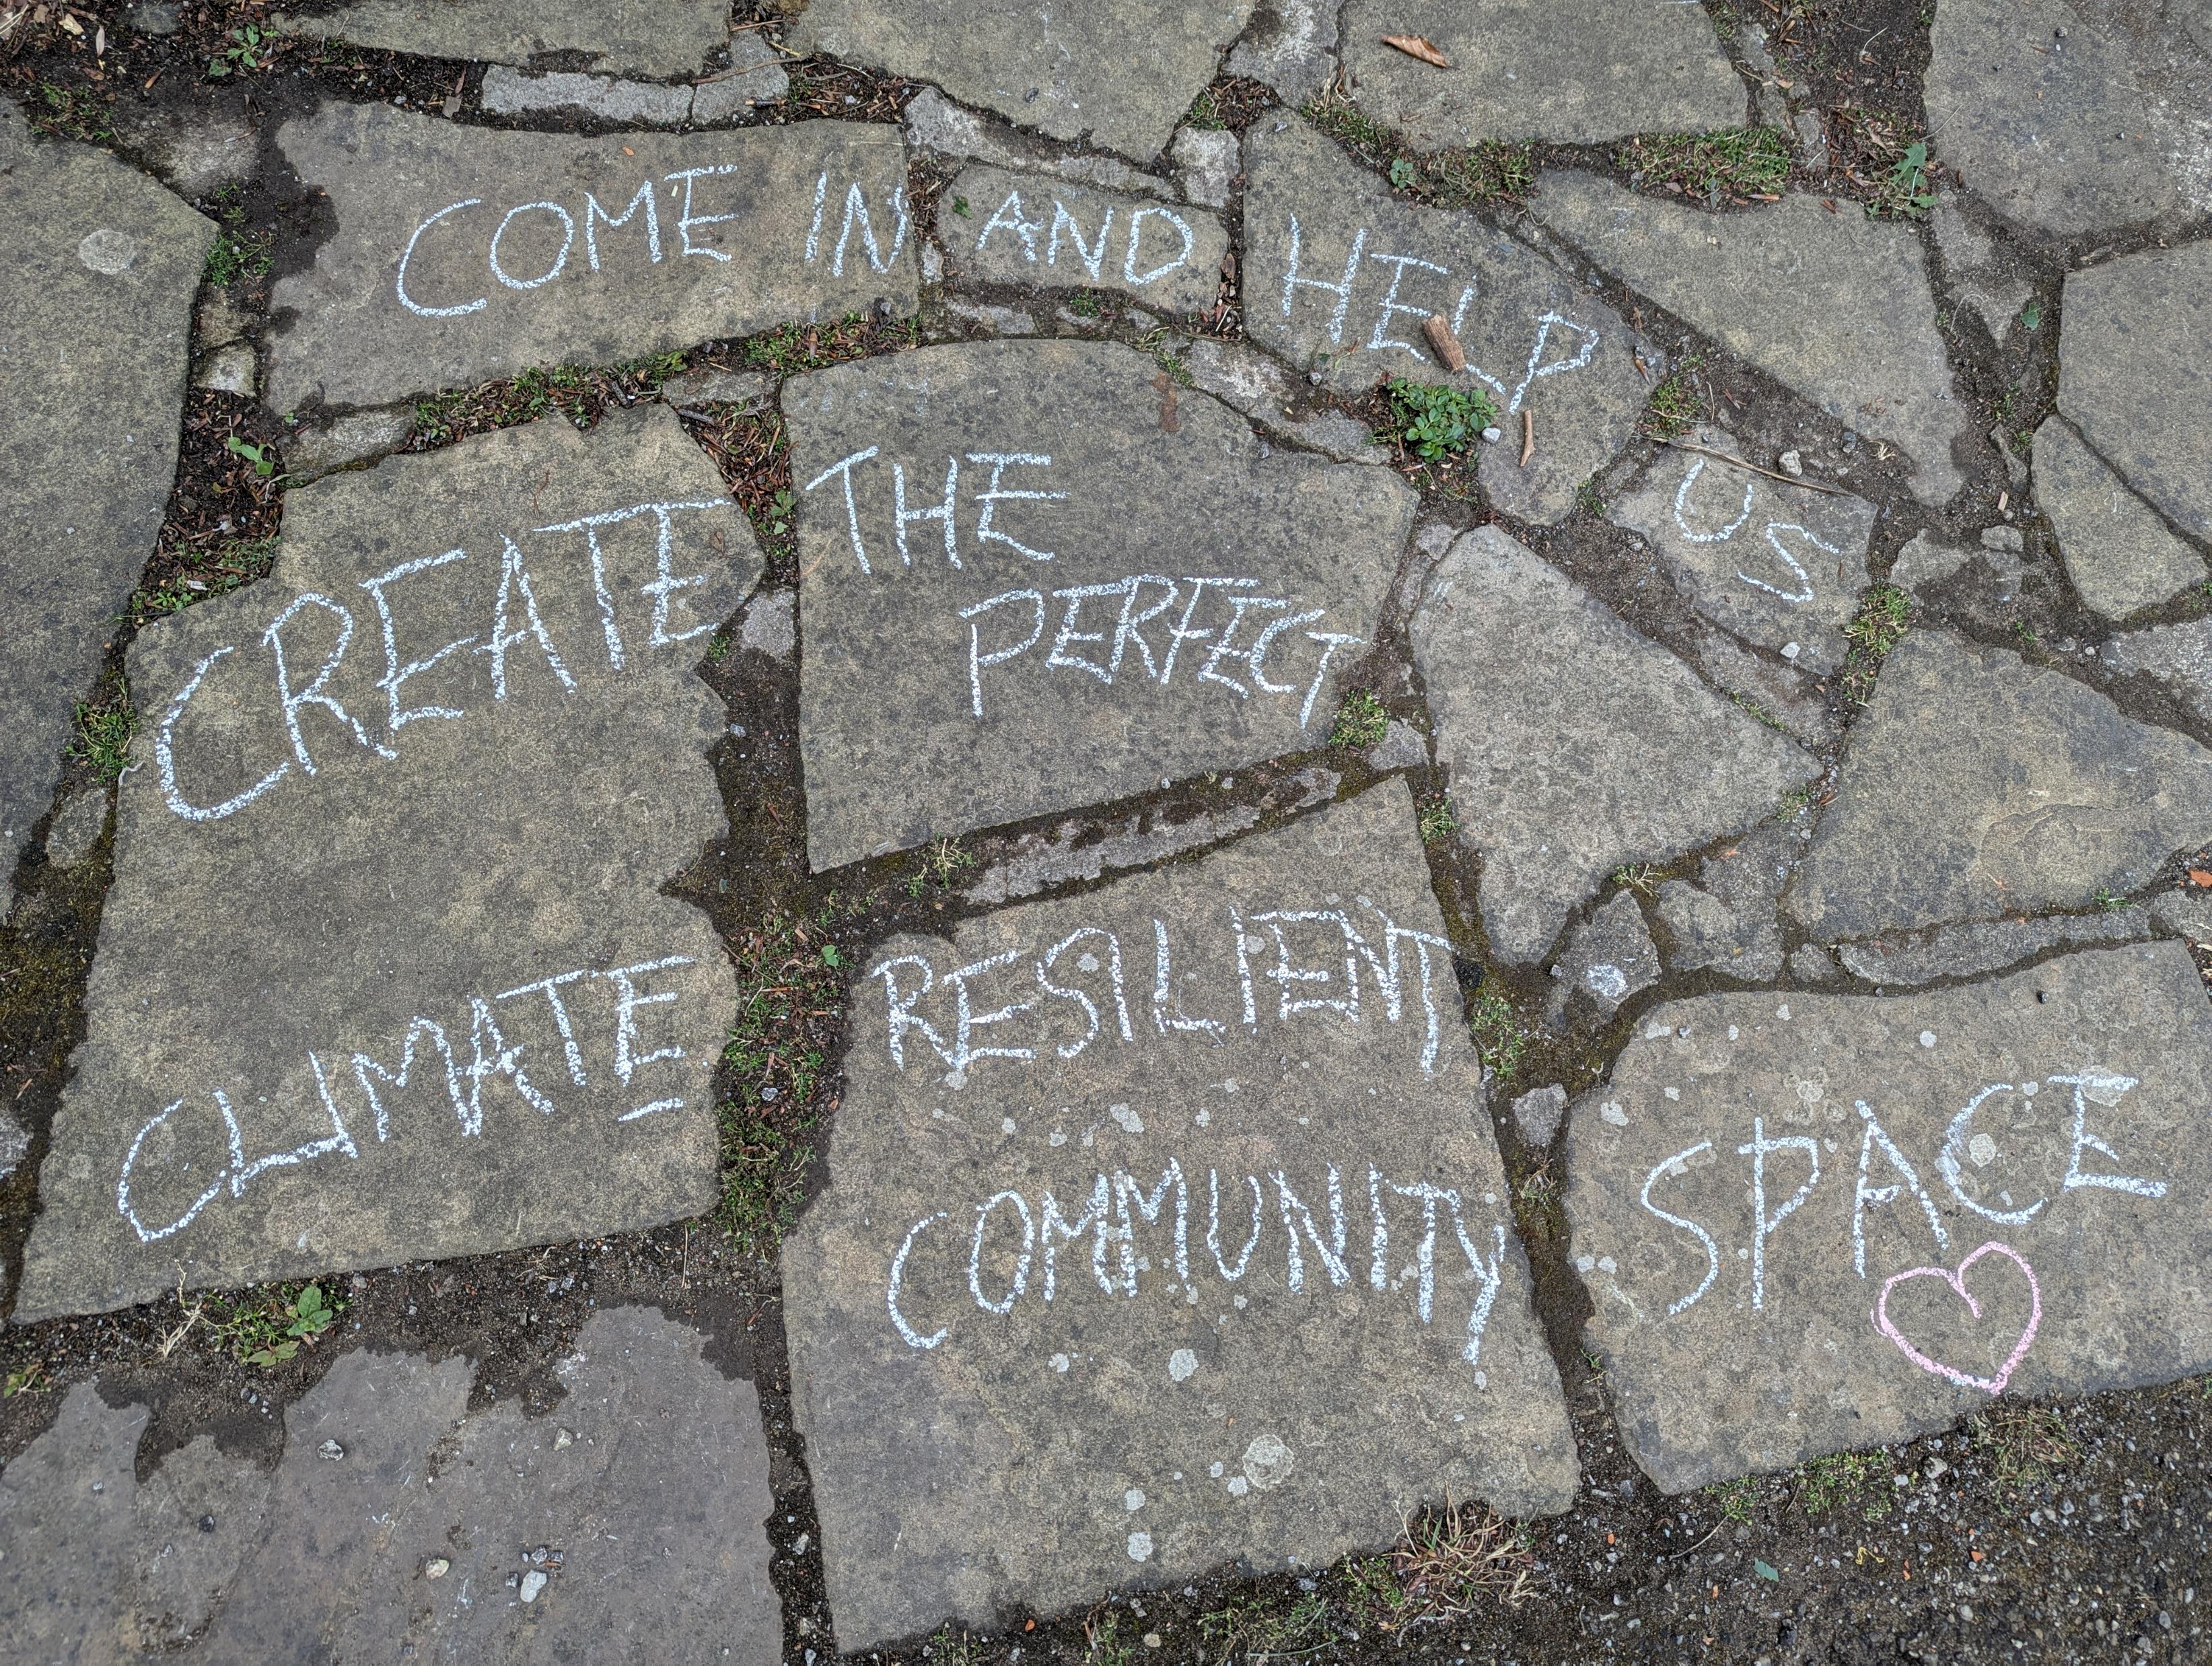 COME IN AND HELP US
CREATE THE
PERFECT
CLIMATE RESILIENT
COMMUNITY SPACE